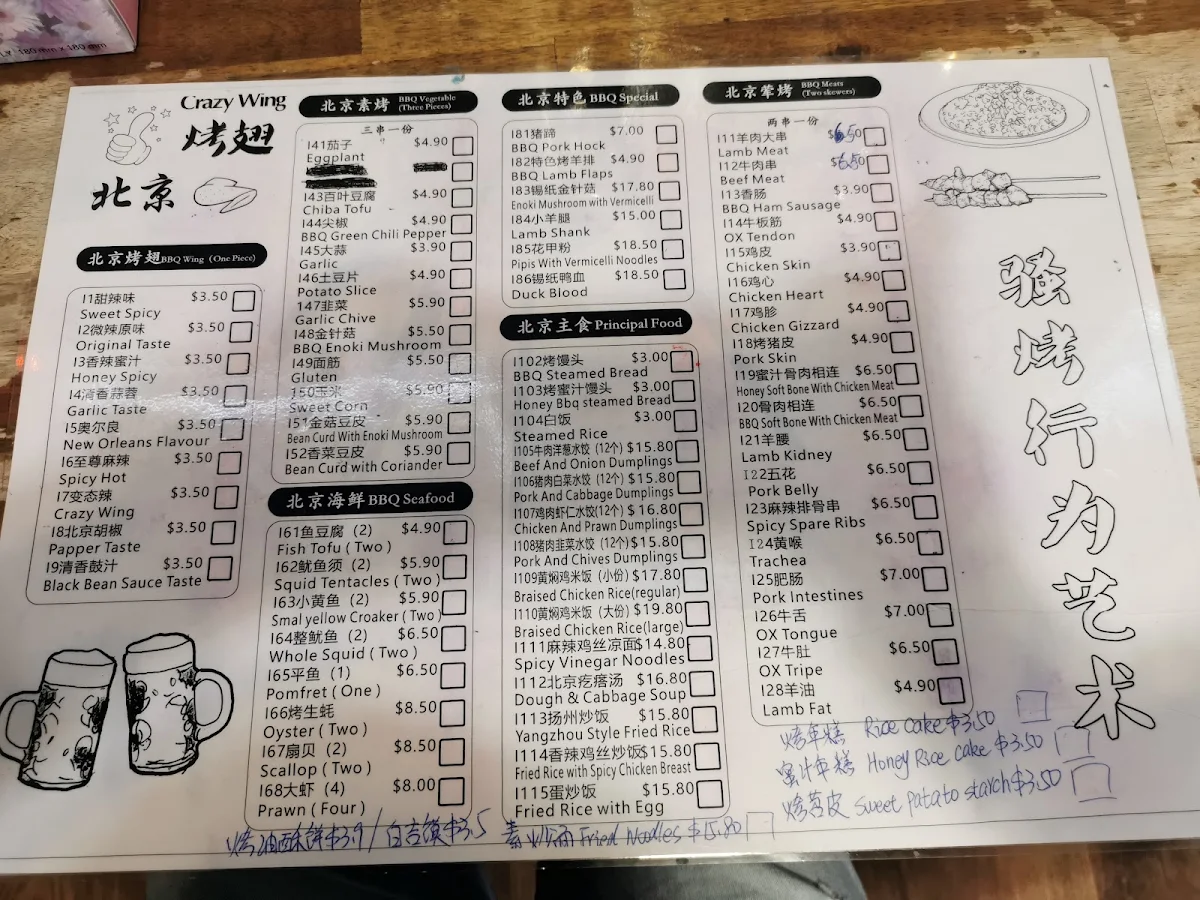 LY. 180 mm x 180 mm
Crazy Wing
烤翅
北京
北京烤翅 BBQ Wing (One Piece)
I1甜辣味 $3.50
Sweet Spicy
I2微辣原味 $3.50
Original Taste
I3香辣蜜汁 $3.50
Honey Spicy
I4清香蒜蓉 $3.50
Garlic Taste
I5奥尔良 $3.50
New Orleans Flavour
I6至尊麻辣 $3.50
Spicy Hot
I7变态辣 $3.50
Crazy Wing
I8北京胡椒 $3.50
Papper Taste
I9清香鼓汁 $3.50
Black Bean Sauce Taste
北京素烤 BBQ Vegetable (Three Pieces)
三串一份
I41茄子 $4.90
Eggplant
I43百叶豆腐 $4.90
Chiba Tofu
I44尖椒 $4.90
BBQ Green Chili Pepper
I45大蒜 $3.90
Garlic
I46土豆片 $4.90
Potato Slice
I47韭菜 $5.90
Garlic Chive
I48金针菇 $5.50
BBQ Enoki Mushroom
I49面筋 $5.50
Gluten
I50玉米 $5.90
Sweet Corn
I51金菇豆皮 $5.90
Bean Curd With Enoki Mushroom
I52香菜豆皮 $5.90
Bean Curd with Coriander
北京海鲜 BBQ Seafood
I61鱼豆腐 (2) $4.90
Fish Tofu ( Two )
I62鱿鱼须 (2) $5.90
Squid Tentacles ( Two )
I63小黄鱼 (2) $5.90
Smal yellow Croaker ( Two )
I64整鱿鱼 (2) $6.50
Whole Squid ( Two )
I65平鱼 (1) $6.50
Pomfret ( One )
I66烤生蚝 $8.50
Oyster ( Two )
I67扇贝 (2) $8.50
Scallop ( Two )
I68大虾 (4) $8.00
Prawn ( Four )
北京特色 BBQ Special
I81猪蹄 $7.00
BBQ Pork Hock
I82特色烤羊排 $4.90
BBQ Lamb Flaps
I83锡纸金针菇 $17.80
Enoki Mushroom with Vermicelli
I84小羊腿 $15.00
Lamb Shank
I85花甲粉 $18.50
Pipis With Vermicelli Noodles
I86锡纸鸭血 $18.50
Duck Blood
北京主食 Principal Food
I102烤馒头 $3.00
BBQ Steamed Bread
I103烤蜜汁馒头 $3.00
Honey Bbq steamed Bread
I104白饭 $3.00
Steamed Rice
I105牛肉洋葱水饺 (12个) $15.80
Beef And Onion Dumplings
I106猪肉白菜水饺 (12个) $15.80
Pork And Cabbage Dumplings
I107鸡肉虾仁水饺(12个) $16.80
Chicken And Prawn Dumplings
I108猪肉韭菜水饺 (12个) $15.80
Pork And Chives Dumplings
I109黄焖鸡米饭 (小份) $17.80
Braised Chicken Rice(regular)
I110黄焖鸡米饭 (大份) $19.80
Braised Chicken Rice(large)
I111麻辣鸡丝凉面$14.80
Spicy Vinegar Noodles
I112北京疙瘩汤 $16.80
Dough & Cabbage Soup
I113扬州炒饭 $15.80
Yangzhou Style Fried Rice
I114香辣鸡丝炒饭$15.80
Fried Rice with Spicy Chicken Breast
I115蛋炒饭 $15.80
Fried Rice with Egg
北京荤烤 BBQ Meats (Two skewers)
两串一份
I11羊肉大串 $6.50
Lamb Meat
I12牛肉串 $6.50
Beef Meat
I13香肠 $3.90
BBQ Ham Sausage
I14牛板筋 $4.90
OX Tendon
I15鸡皮 $3.90
Chicken Skin
I16鸡心 $4.90
Chicken Heart
I17鸡胗 $4.90
Chicken Gizzard
I18烤猪皮 $4.90
Pork Skin
I19蜜汁骨肉相连 $6.50
Honey Soft Bone With Chicken Meat
I20骨肉相连 $6.50
BBQ Soft Bone With Chicken Meat
I21羊腰 $6.50
Lamb Kidney
I22五花 $6.50
Pork Belly
I23麻辣排骨串 $6.50
Spicy Spare Ribs
I24黄喉 $6.50
Trachea
I25肥肠 $7.00
Pork Intestines
I26牛舌 $7.00
OX Tongue
I27牛肚 $6.50
OX Tripe
I28羊油 $4.90
Lamb Fat
骚烤行为艺术
烤年糕 Rice cake $3.50
蜜汁年糕 Honey Rice cake $3.50
烤苕皮 Sweet patato starch $3.50
烤油酥饼$3.9 / 白吉馍$3.5 素炒面 Fried Noodles $15.80